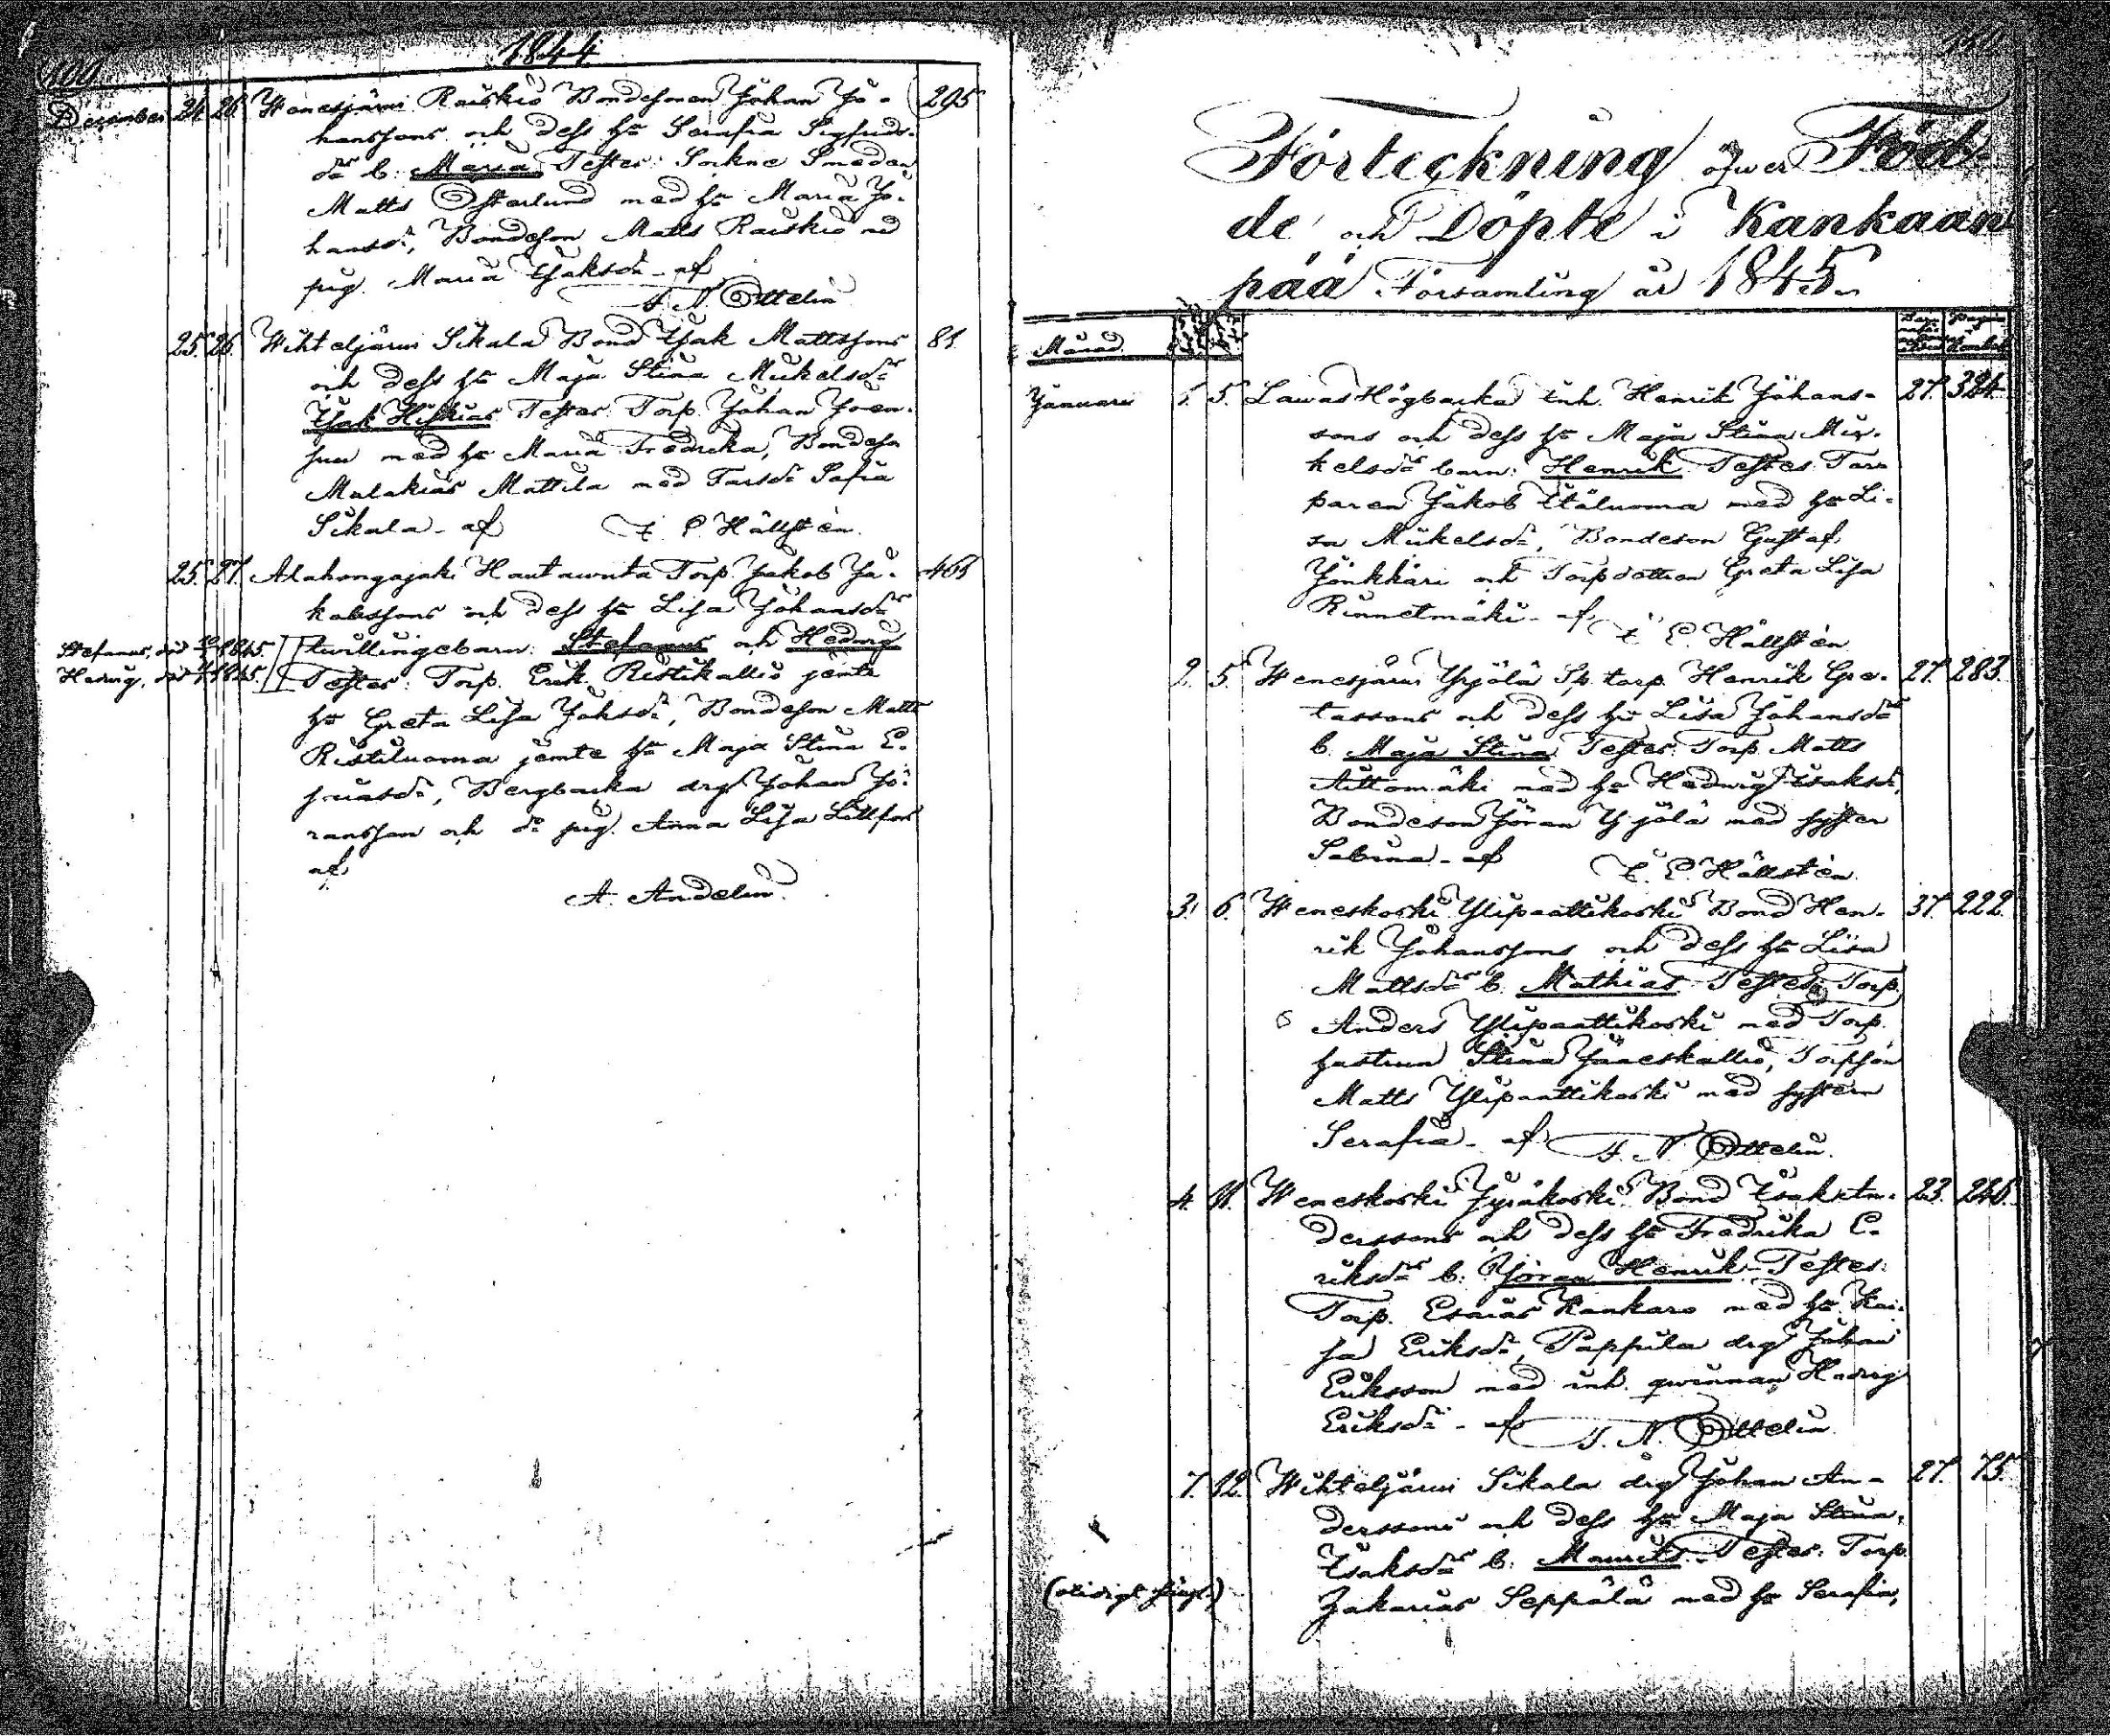 100
1844
December 24. 26. Wenesjärvi Raiskio Bondesonen Johan Jo- 295
hanssons och dess hu Serafia Sigfrids-
dr b. Maria Testes: Sockne Smeden
Matts Österlund med hu Maria Jo-
hansdr, Bondeson Matts Raiskio med
pig. Maria Isaksdr - af
F. N. Ottelin
25. 26. Wihteljärvi Sikala Bond Isak Mattssons 81.
och dess hu Maja Stina Mickelsdr
Isak Hiskias Testes: Torp. Johan
med hu Maria Fredrika, Bondeson
Malakias Mattila med Sofia
Sikala - af F. E. Hällstén.
25. 27. Alahongajoki Hautawuota Torp. Jakob Ja-
kobssons och dess hu Lisa Johansdr
Stefanus, död 1845.
Hedvig, död 1845.
twillingebarn: Stefanus och Hedvig
Testes: Torp. Erik Ristikallio jemte
hu Greta Lisa Jaksdr, Bondeson Matts
Ristiluoma jemte hu Maja Stina E-
saiasdr, Bergbacka drg Johan Jö-
ransson och do pig. Anna Lisa Lillfors
af
A. Andelin.
Förteckning öfwer Föd-
de och Döpte i Kankaan
pää Församling år 1845.
Månad.
Januari 1. 5. Lawas Högbacka inh. Henrik Johans- 27. 324.
sons och dess hu Maja Stina Mic-
kelsdr barn: Henrik Testes: Tor-
paren Jakob Itäluoma med hu Li-
sa Mickelsdr, Bondeson Gustaf
Jönkkäri och Torpdottren Greta Lisa
Rinnetmäki - af
F. E. Hällstén
2. 5. Wenesjärvi Yrjölä Sp. torp. Henrik Gus- 27. 283.
tassons och dess hu Lisa Johansdr
b. Maja Stina Testes: Torp. Matts
Aittomäki med hu Hedwig Isaksdr,
Bondeson Jöran Yrjölä med syster
Sabina - af F. E. Hällstén.
3. 6. Weneskoski Ylipaattikoski Bond Hen- 37. 222.
rik Johanssons och dess hu Lisa
Mattsdr b. Mathias Testes: Torp.
Anders Ylipaattikoski med Torp.
hustrun Stina Jäneskallio, Torpson
Matts Ylipaattikoski med systern
Serafia - af F. N. Ottelin.
4. 11. Weneskoski Jyräkoski Bond Isak An- 23. 246.
derssons och dess hu Fredrika E-
riksdr b. Jöran Henrik Testes:
Torp. Esaias Kankaro med hu Kai-
sa Eriksdr, Pappila drg Johan
Eriksson med inh. qwinnan Hedvig
Eriksdr - af F. N. Ottelin.
7. 12. Wihteljärvi Sikala drg Johan An- 27. 75.
derssons och dess hu Maja Stina
Isaksdr b. Maurits Testes: Torp.
Zakarias Seppälä med hu Serafia,